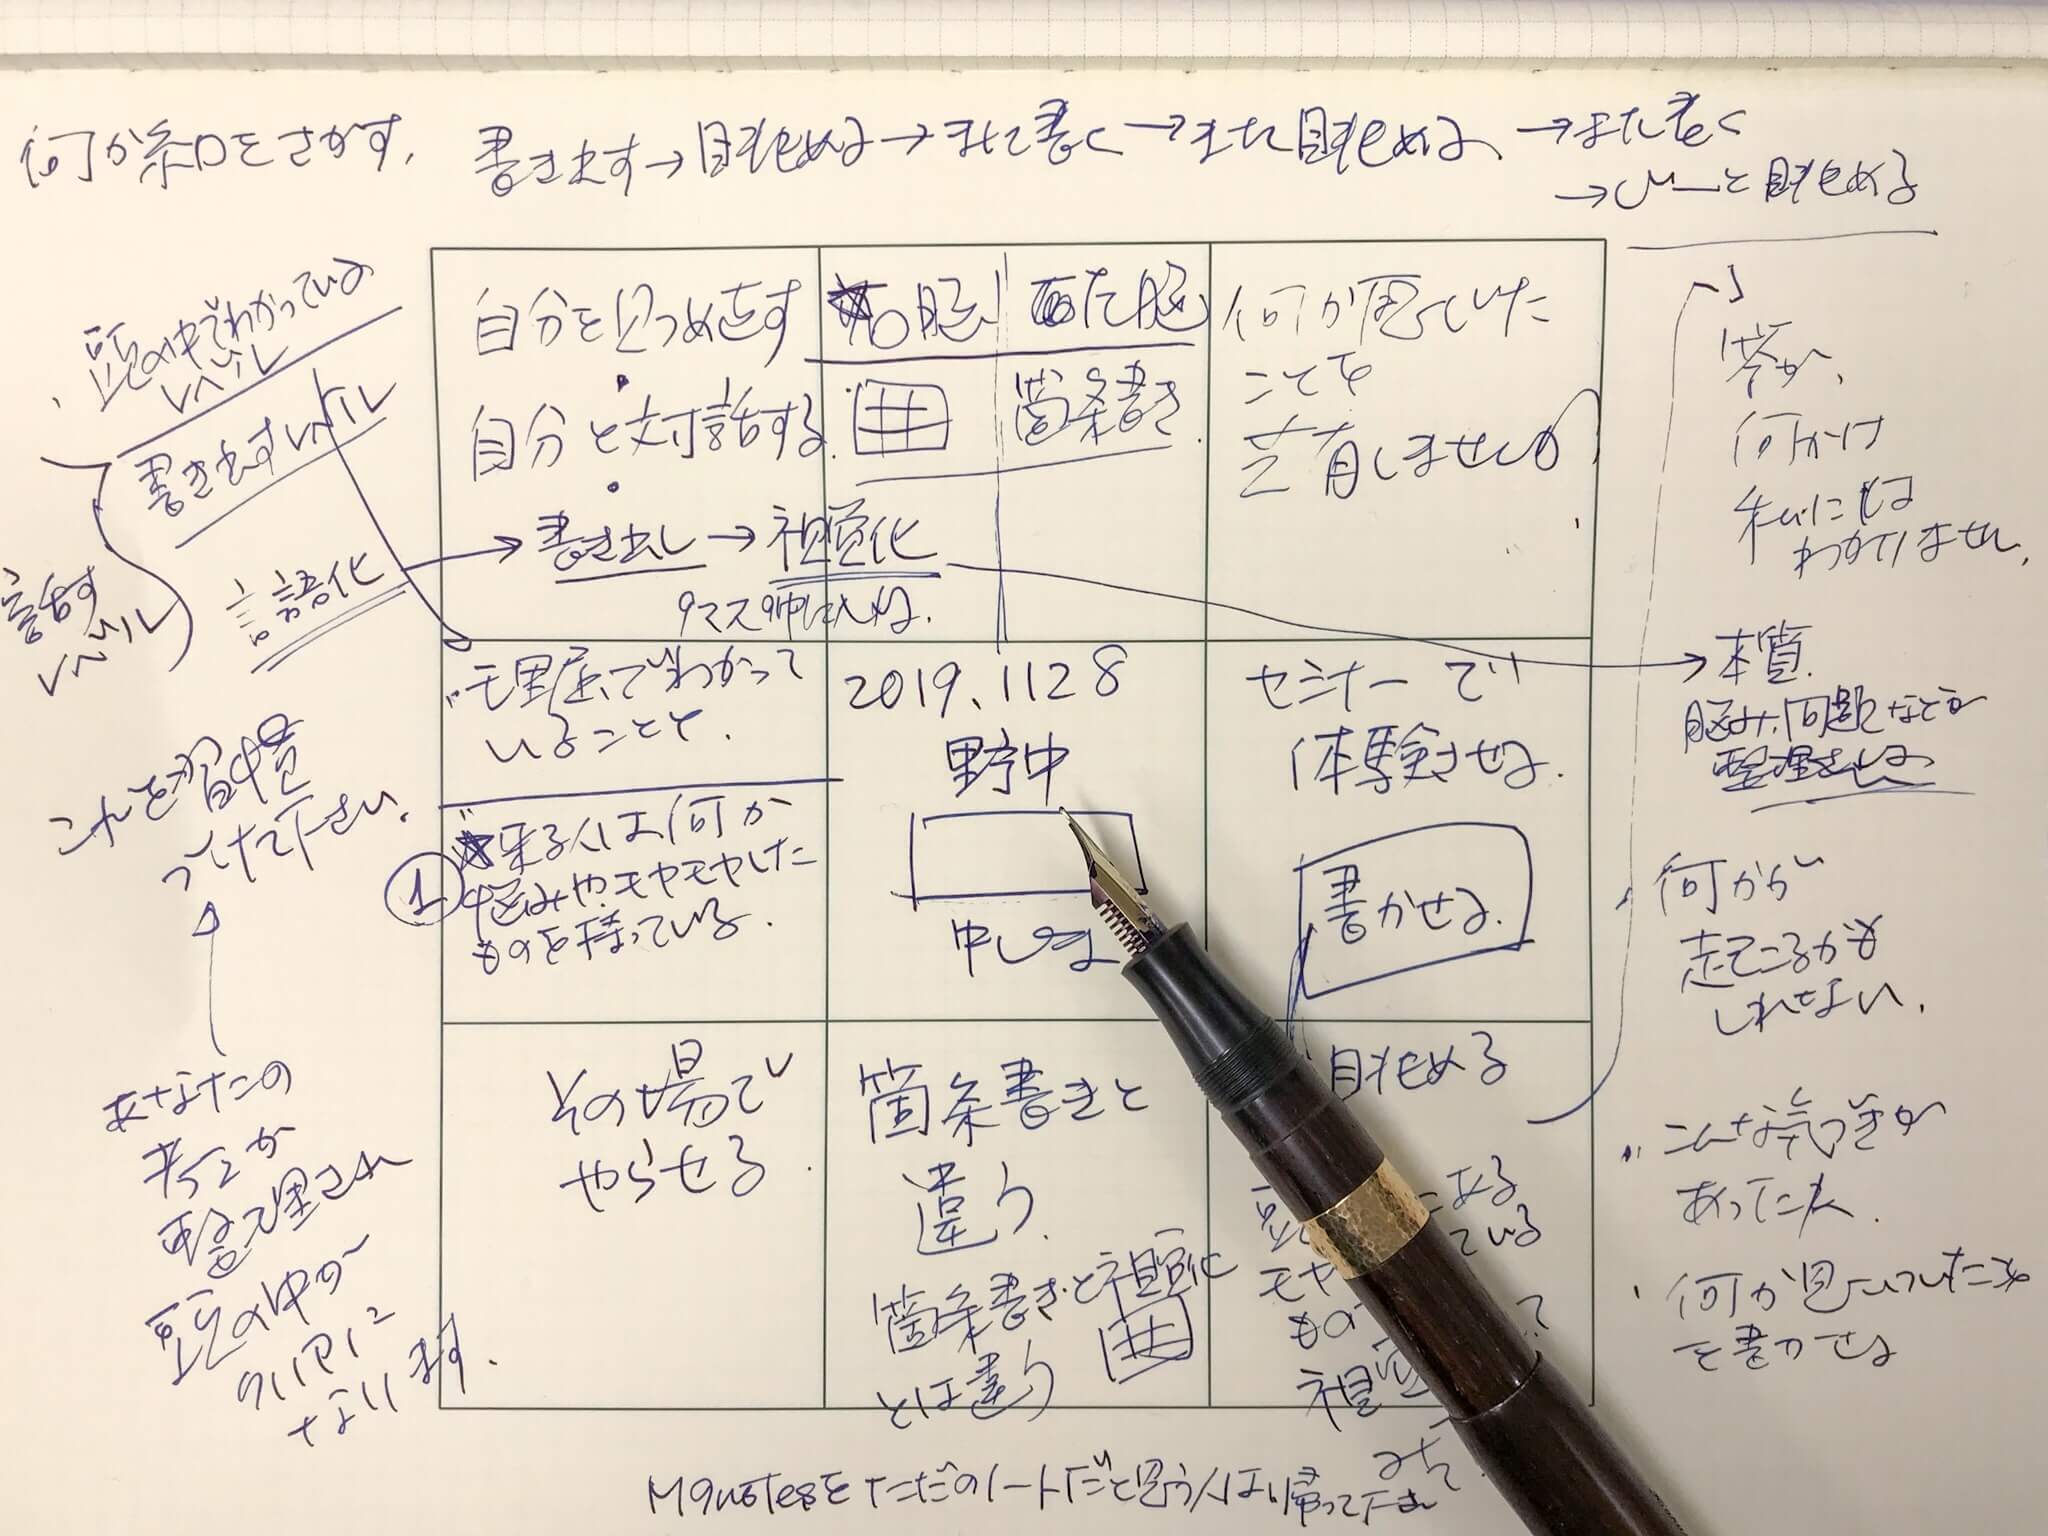 何か糸口をさがす.
書き出す→眺める→また書く→また眺める→また書く
→じーと眺める
頭の中でわかっている
レベル
書き出すレベル
話す
レベル
言語化
これを習慣
づけて下さい.
あなたの
考えが
整理され
頭の中が
クリアに
なります.
自分を見つめ直す
自分と対話する.
→書き出し→視覚化
9マス
右脳
左脳
箇条書き
何か思っていた
ことを
共有しませんか
理屈でわかって
いることと.
①
来る人は何か
悩みやモヤモヤした
ものを持っている.
2019.1128
野中
セミナーで
体験させる.
書かせる.
その場で
やらせる.
箇条書きと
違う.
箇条書きと視覚化
とは違う
眺める
にある
ている
モヤ
もの
視覚
みて
答が
何かは
私には
わかりません.
本質.
悩み、問題などが
整理される
何かが
起こるかも
しれない.
こんな気づきが
あった
何か思いついたこと
を書かせる
M9notesをただのノートだと思う人は帰って下さい